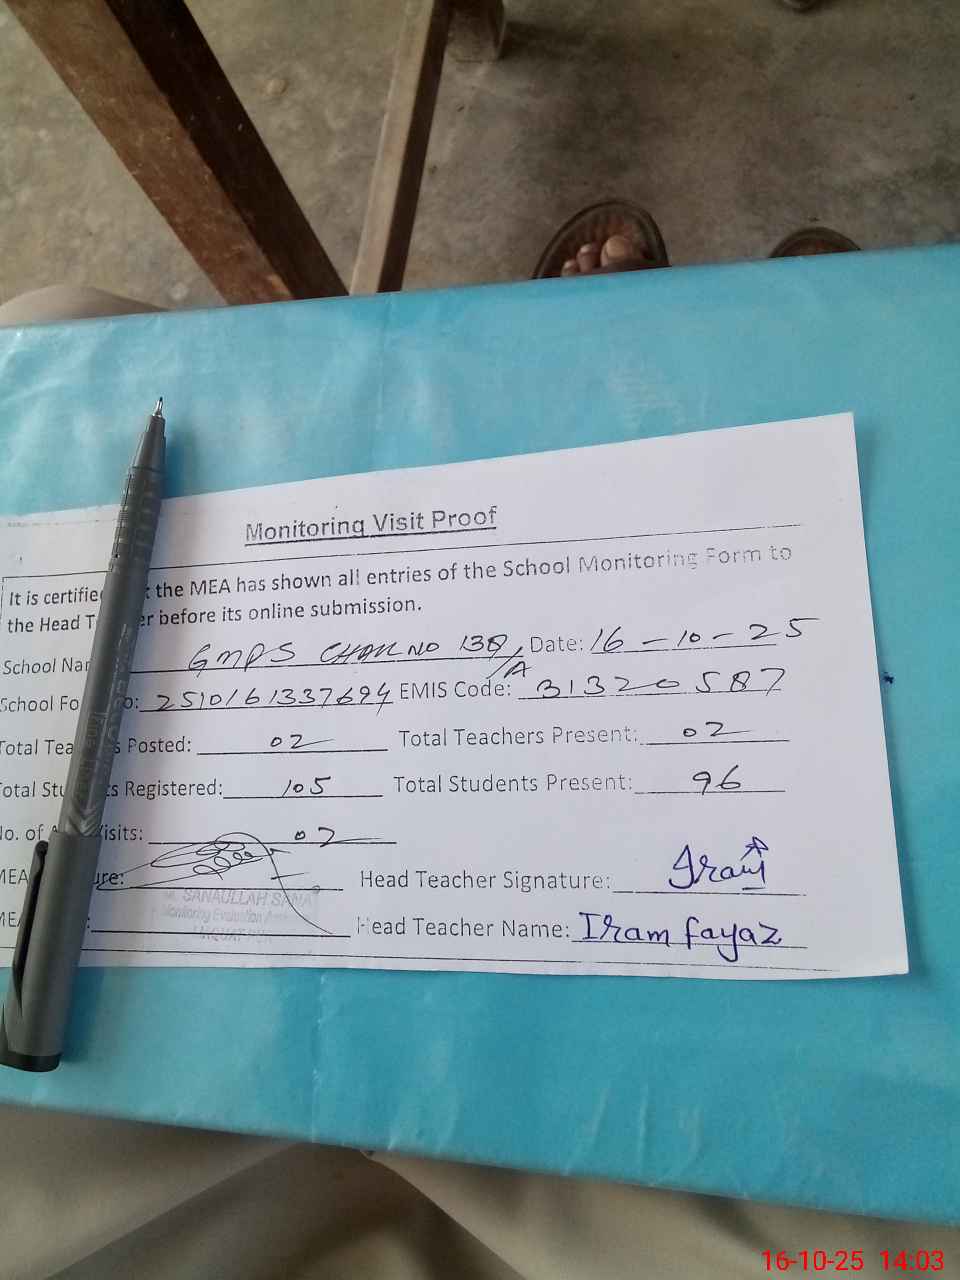 Monitoring Visit Proof
It is certified the MEA has shown all entries of the School Monitoring Form to
the Head T er before its online submission.
School Nam GMPS CHAK NO 138/A Date: 16-10-25
School Fo o: 2510161337694 EMIS Code: 31320587
Total Tea s Posted: 02 Total Teachers Present: 02
Total Stu ts Registered: 105 Total Students Present: 96
No. of A Visits: 02
MEA ure: Head Teacher Signature: Iram
MEA : M. SANAULLAH SANA Head Teacher Name: Iram fayaz
Monitoring Evaluation
16-10-25 14:03